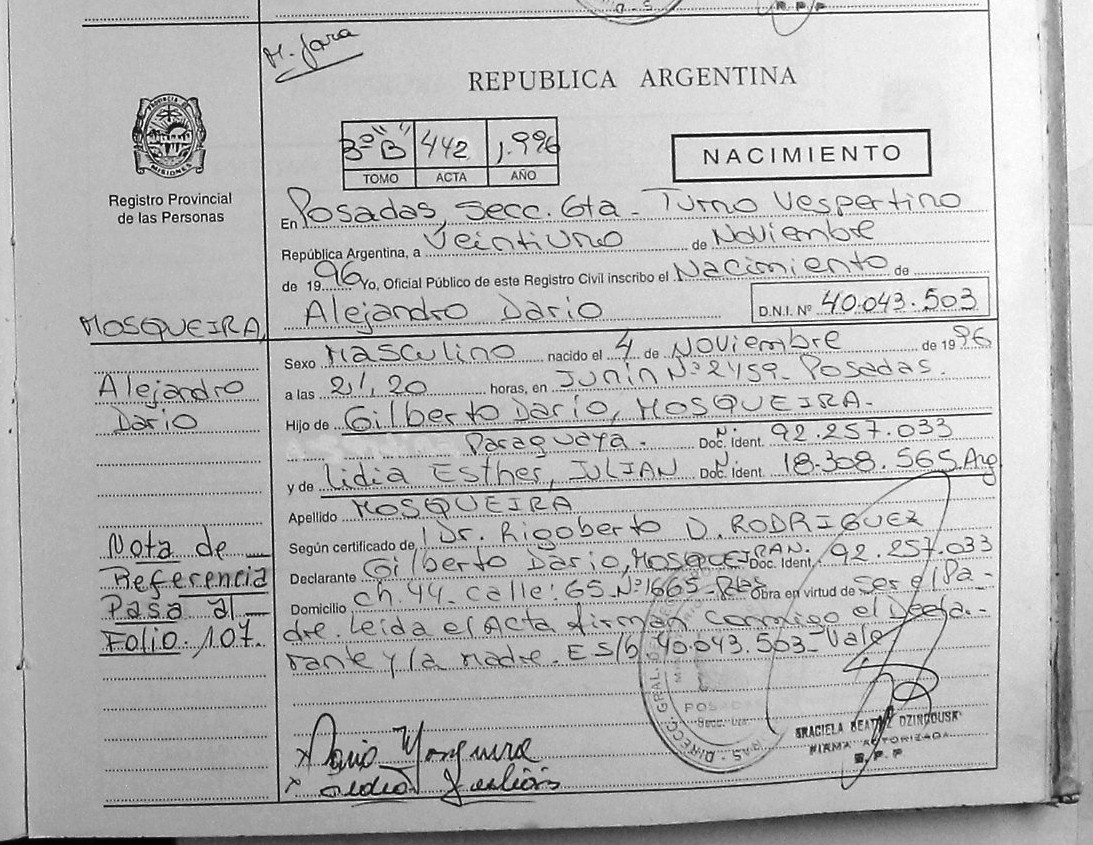 R.P.P
M. Jara
REPUBLICA ARGENTINA
3º "B" 442 1.996
TOMO ACTA AÑO
NACIMIENTO
PROVINCIA DE MISIONES
Registro Provincial
de las Personas
En Posadas, Secc. 6ta - Turno Vespertino
República Argentina, a Veintiuno de Noviembre
de 1996 Yo, Oficial Público de este Registro Civil inscribo el Nacimiento de
Alejandro Dario D.N.I. Nº 40.043.503
MOSQUEIRA,
Alejandro
Dario
Sexo Masculino nacido el 4 de Noviembre de 1996
a las 21,20 horas, en Junín Nº 2459- Posadas.
Hijo de Gilberto Darío, MOSQUEIRA-
Paraguaya. Doc. Ident. 92.257.033
y de Lidia Esther, JULIAN Doc. Ident. 18.308.565. Arg
Apellido MOSQUEIRA
Según certificado de Dr. Rigoberto D. RODRIGUEZ
Declarante Gilberto Darío, MOSQUEIRA N. Doc. Ident. 92.257.033
Domicilio ch. 44- calle: 65- Nº 1665- Pdas Obra en virtud de ser el Pa-
dre. Leída el Acta firman conmigo el Decla-
rante y la Madre. E S/b 40.043.503- Vale
Nota de
Referencia
Pasa al
Folio. 107.
POSADAS
GRACIELA BEATRIZ
FIRMA AUTORIZADA
R.P.P
x Dario Mosqueira
x Lidia Julian